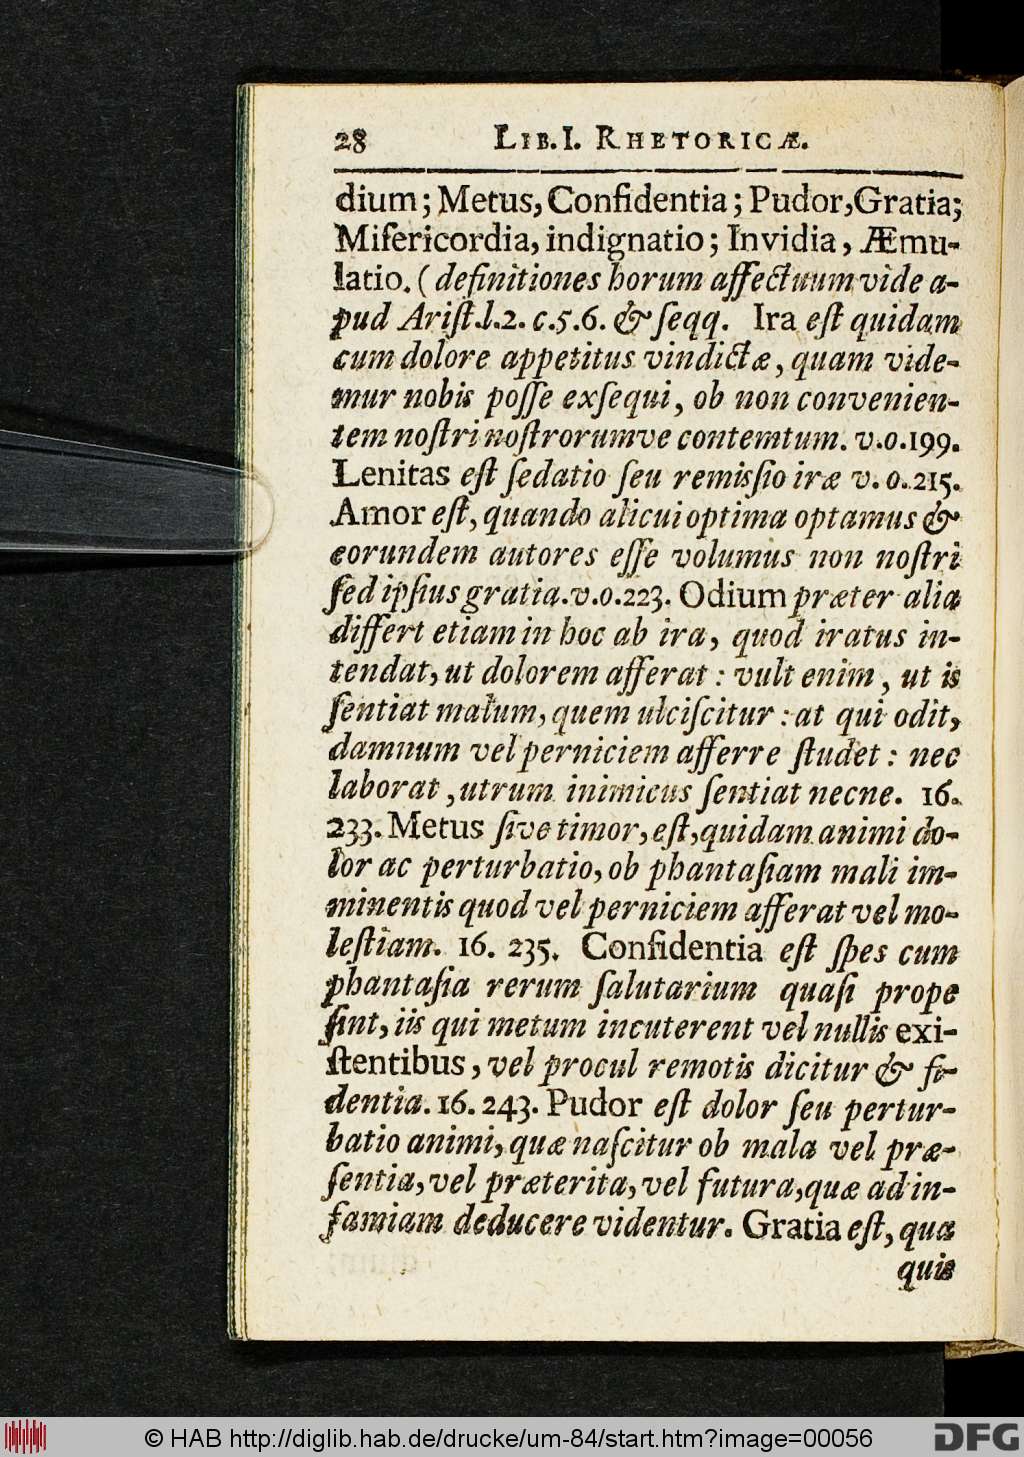 28 LIB. I. RHETORICÆ.
dium; Metus, Confidentia; Pudor, Gratia;
Miſericordia, indignatio; Invidia, Æmu-
latio. (definitiones horum affectuum vide a-
pud Ariſt. l. 2. c. 5. 6. & ſeqq. Ira eſt quidam
cum dolore appetitus vindictæ, quam vide-
mur nobis poſſe exſequi, ob non convenien-
tem noſtri noſtrorumve contemtum. v. o. 199.
Lenitas eſt ſedatio ſeu remisſio iræ v. o. 215.
Amor eſt, quando alicui optima optamus &
eorundem autores eſſe volumus non noſtri
ſed ipſius gratia. v. o. 223. Odium præter alia
differt etiam in hoc ab ira, quod iratus in-
tendat, ut dolorem afferat: vult enim, ut is
ſentiat malum, quem ulciſcitur: at qui odit,
damnum vel perniciem afferre ſtudet: nec
laborat, utrum inimicus ſentiat necne. 16.
233. Metus ſive timor, eſt, quidam animi do-
lor ac perturbatio, ob phantaſiam mali im-
minentis quod vel perniciem afferat vel mo-
leſtiam. 16. 235. Confidentia eſt ſpes cum
phantaſia rerum ſalutarium quaſi prope
ſint, iis qui metum incuterent vel nullis exi-
ſtentibus, vel procul remotis dicitur & fi-
dentia. 16. 243. Pudor eſt dolor ſeu pertur-
batio animi, quæ naſcitur ob mala vel præ-
ſentia, vel præterita, vel futura, quæ ad in-
famiam deducere videntur. Gratia eſt, qua
quis
© HAB http://diglib.hab.de/drucke/um-84/start.htm?image=00056
DFG